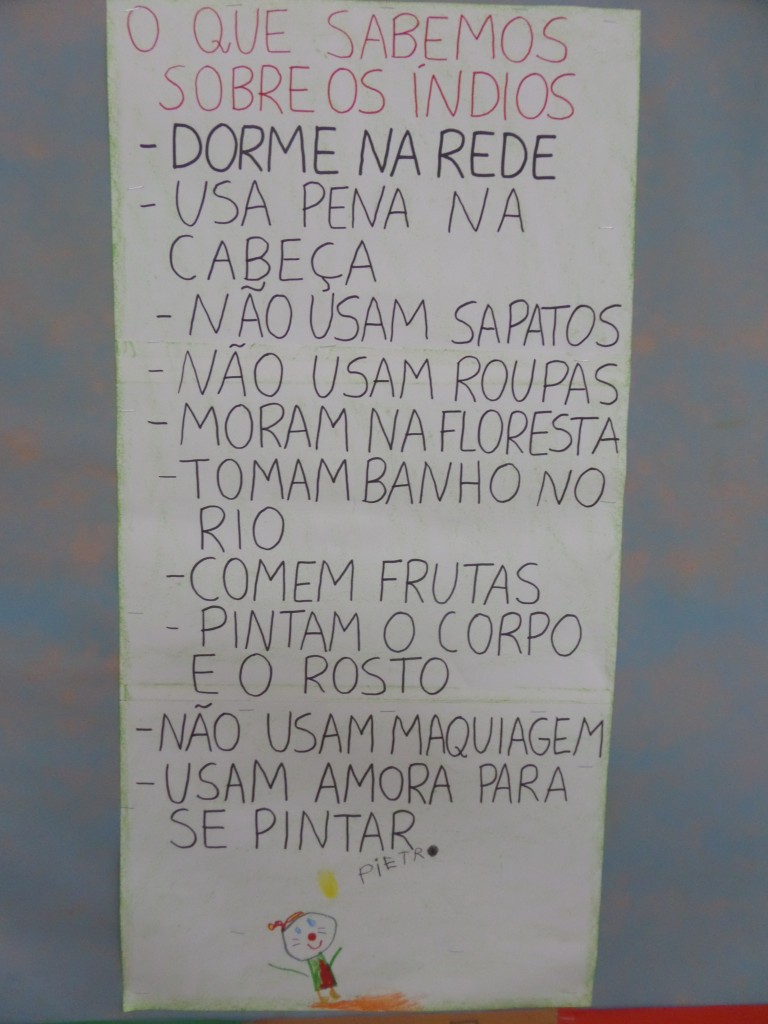 O QUE SABEMOS
SOBRE OS ÍNDIOS
- DORME NA REDE
- USA PENA NA
CABEÇA
- NÃO USAM SAPATOS
- NÃO USAM ROUPAS
- MORAM NA FLORESTA
- TOMAM BANHO NO
RIO
- COMEM FRUTAS
- PINTAM O CORPO
E O ROSTO
- NÃO USAM MAQUIAGEM
- USAM AMORA PARA
SE PINTAR
PIETRO